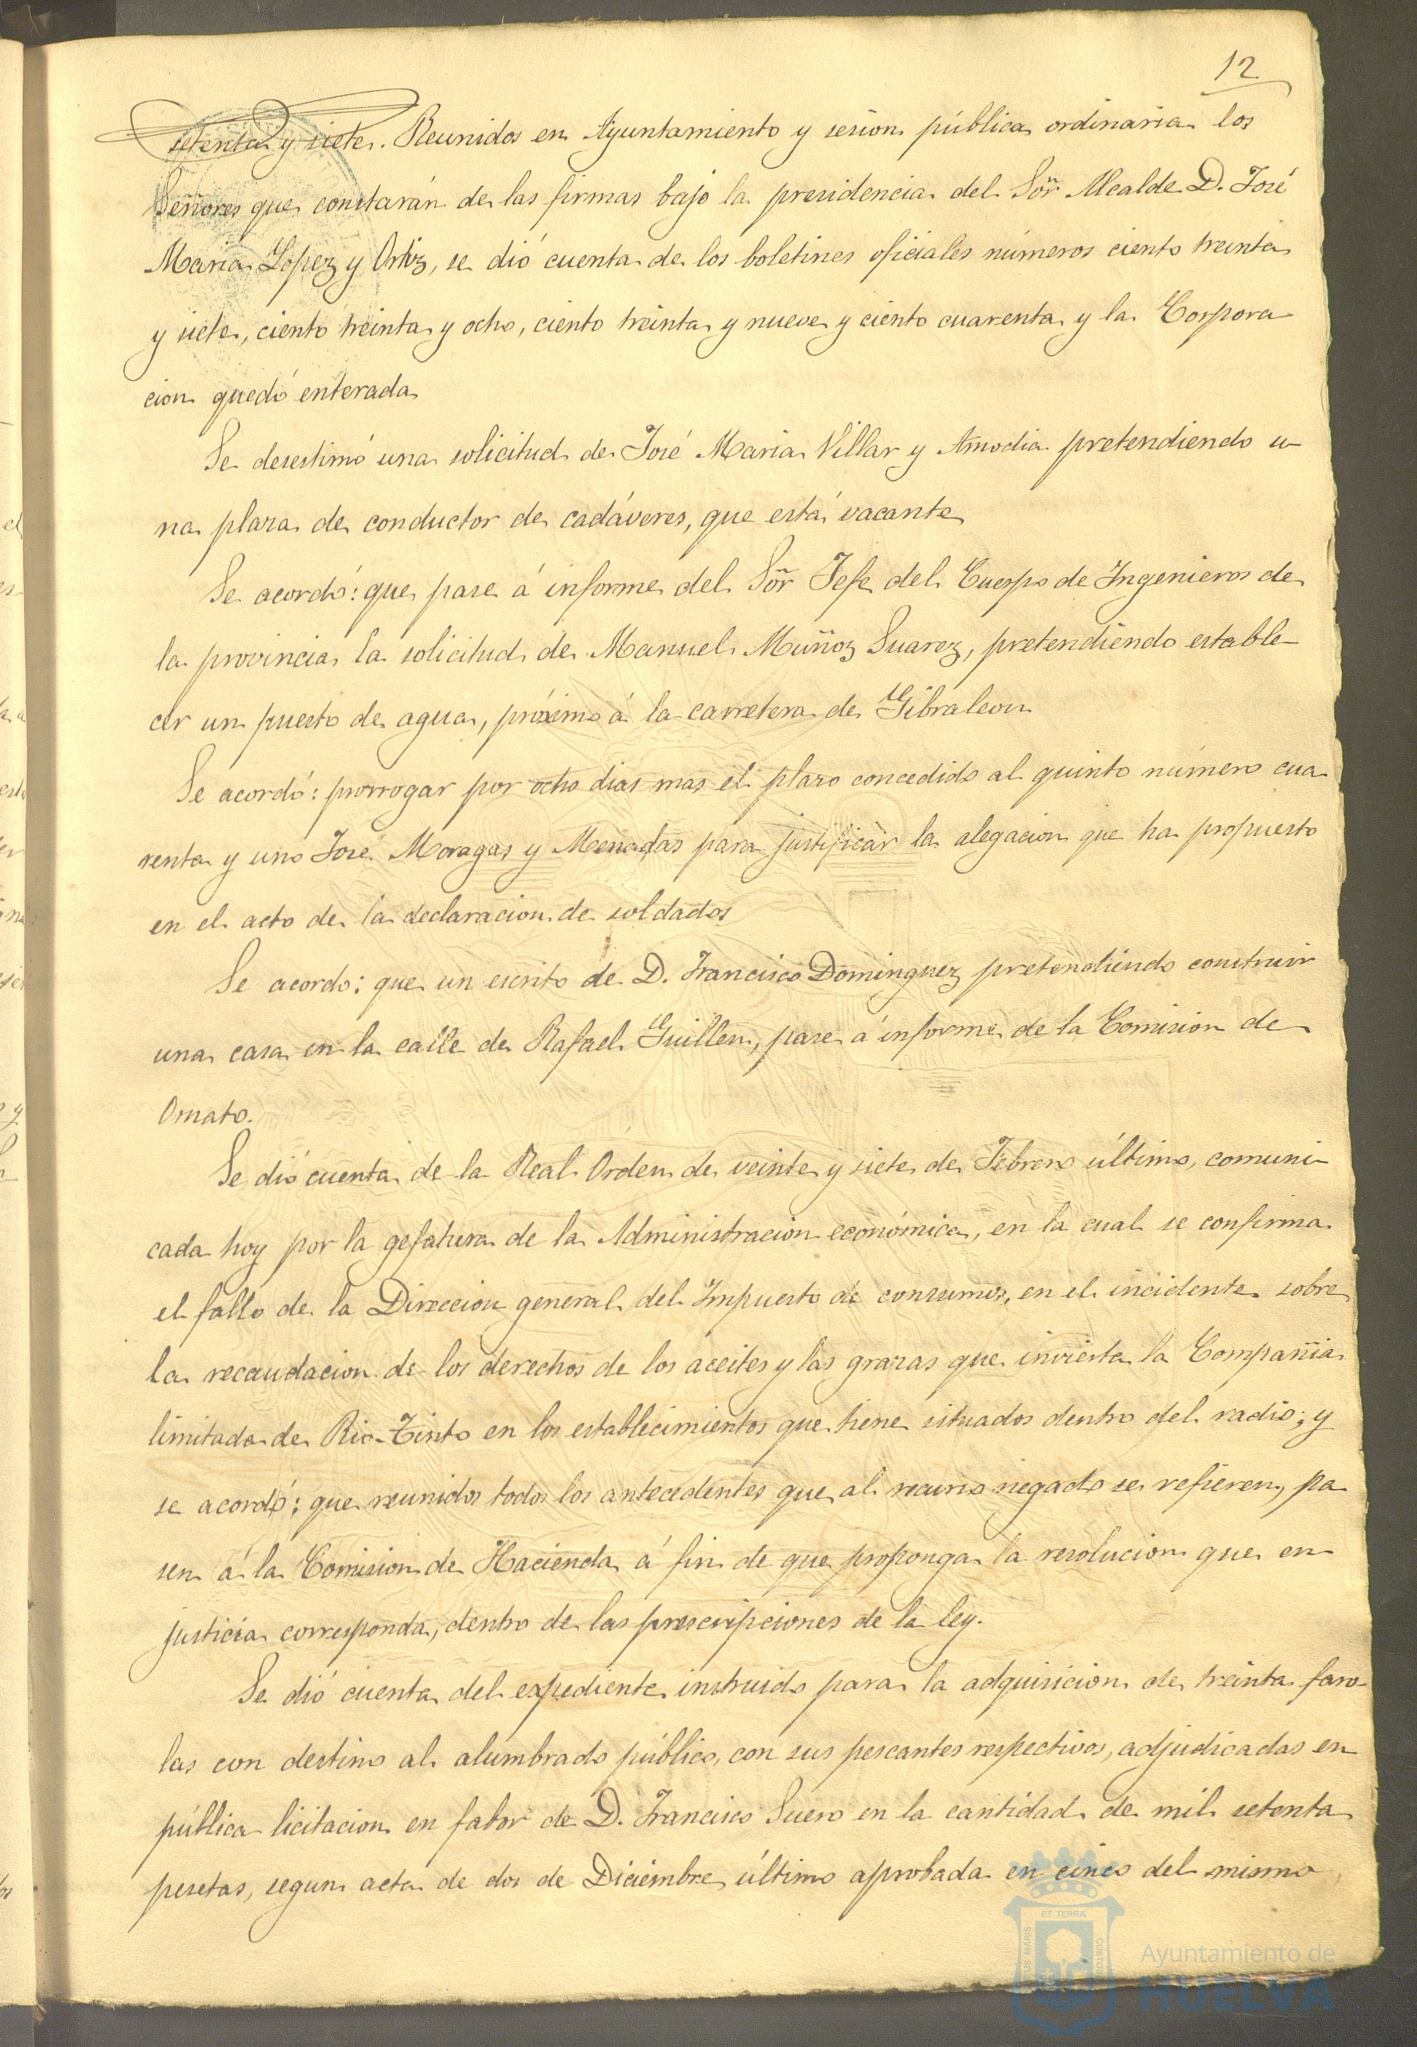 12
setenta y siete. Reunidos en Ayuntamiento y sesion pública ordinaria los
Señores que constarán de las firmas bajo la presidencia del Soñr Alcalde D. José
Maria Lopez y Ortiz, se dió cuenta de los boletines oficiales números ciento treinta
y siete, ciento treinta y ocho, ciento treinta y nueve y ciento cuarenta y la Corpora
cion quedó enterada
Se desestimó una solicitud de José Maria Villar y Amodia pretendiendo u-
na plaza de conductor de cadáveres, que está vacante
Se acordó: que pase á informe del Soñr Jefe del Cuerpo de Ingenieros de
la provincia la solicitud de Manuel Muñoz Suarez, pretendiendo estable-
cer un puesto de agua, próximo á la carretera de Gibraleon
Se acordó: prorrogar por ocho dias mas el plazo concedido al quinto número cua
renta y uno José Moragas y para justificar la alegacion que ha propuesto
en el acto de la declaracion de soldados
Se acordó: que un escrito de D. Francisco Dominguez pretendiendo construir
una casa en la calle de Rafael Guillen, pase á informe de la Comision de
Ornato.
Se dió cuenta de la Real Orden de veinte y siete de Febrero último, comuni-
cada hoy por la gefatura de la Administracion económica, en la cual se confirma
el fallo de la Direccion general del Impuesto de consumos, en el incidente sobre
la recaudacion de los derechos de los aceites y las grasas que invierta la Compañia
limitada de Rio-Tinto en los establecimientos que tiene situados dentro del radio; y
se acordó: que reunidos todos los antecedentes que al recurso negado se refieren, pa
sen á la Comision de Hacienda á fin de que proponga la resolucion que en
justicia corresponda, dentro de las prescripciones de la ley.
Se dió cuenta del expediente instruido para la adquisicion de treinta faro-
las con destino al alumbrado público, con sus pescantes respectivos, adjudicadas en
pública licitacion en fabor de D. Francisco Suero en la cantidad de mil setenta
pesetas, segun acta de dos de Diciembre último aprobada en cinco del mismo
Ayuntamiento de
HUELVA